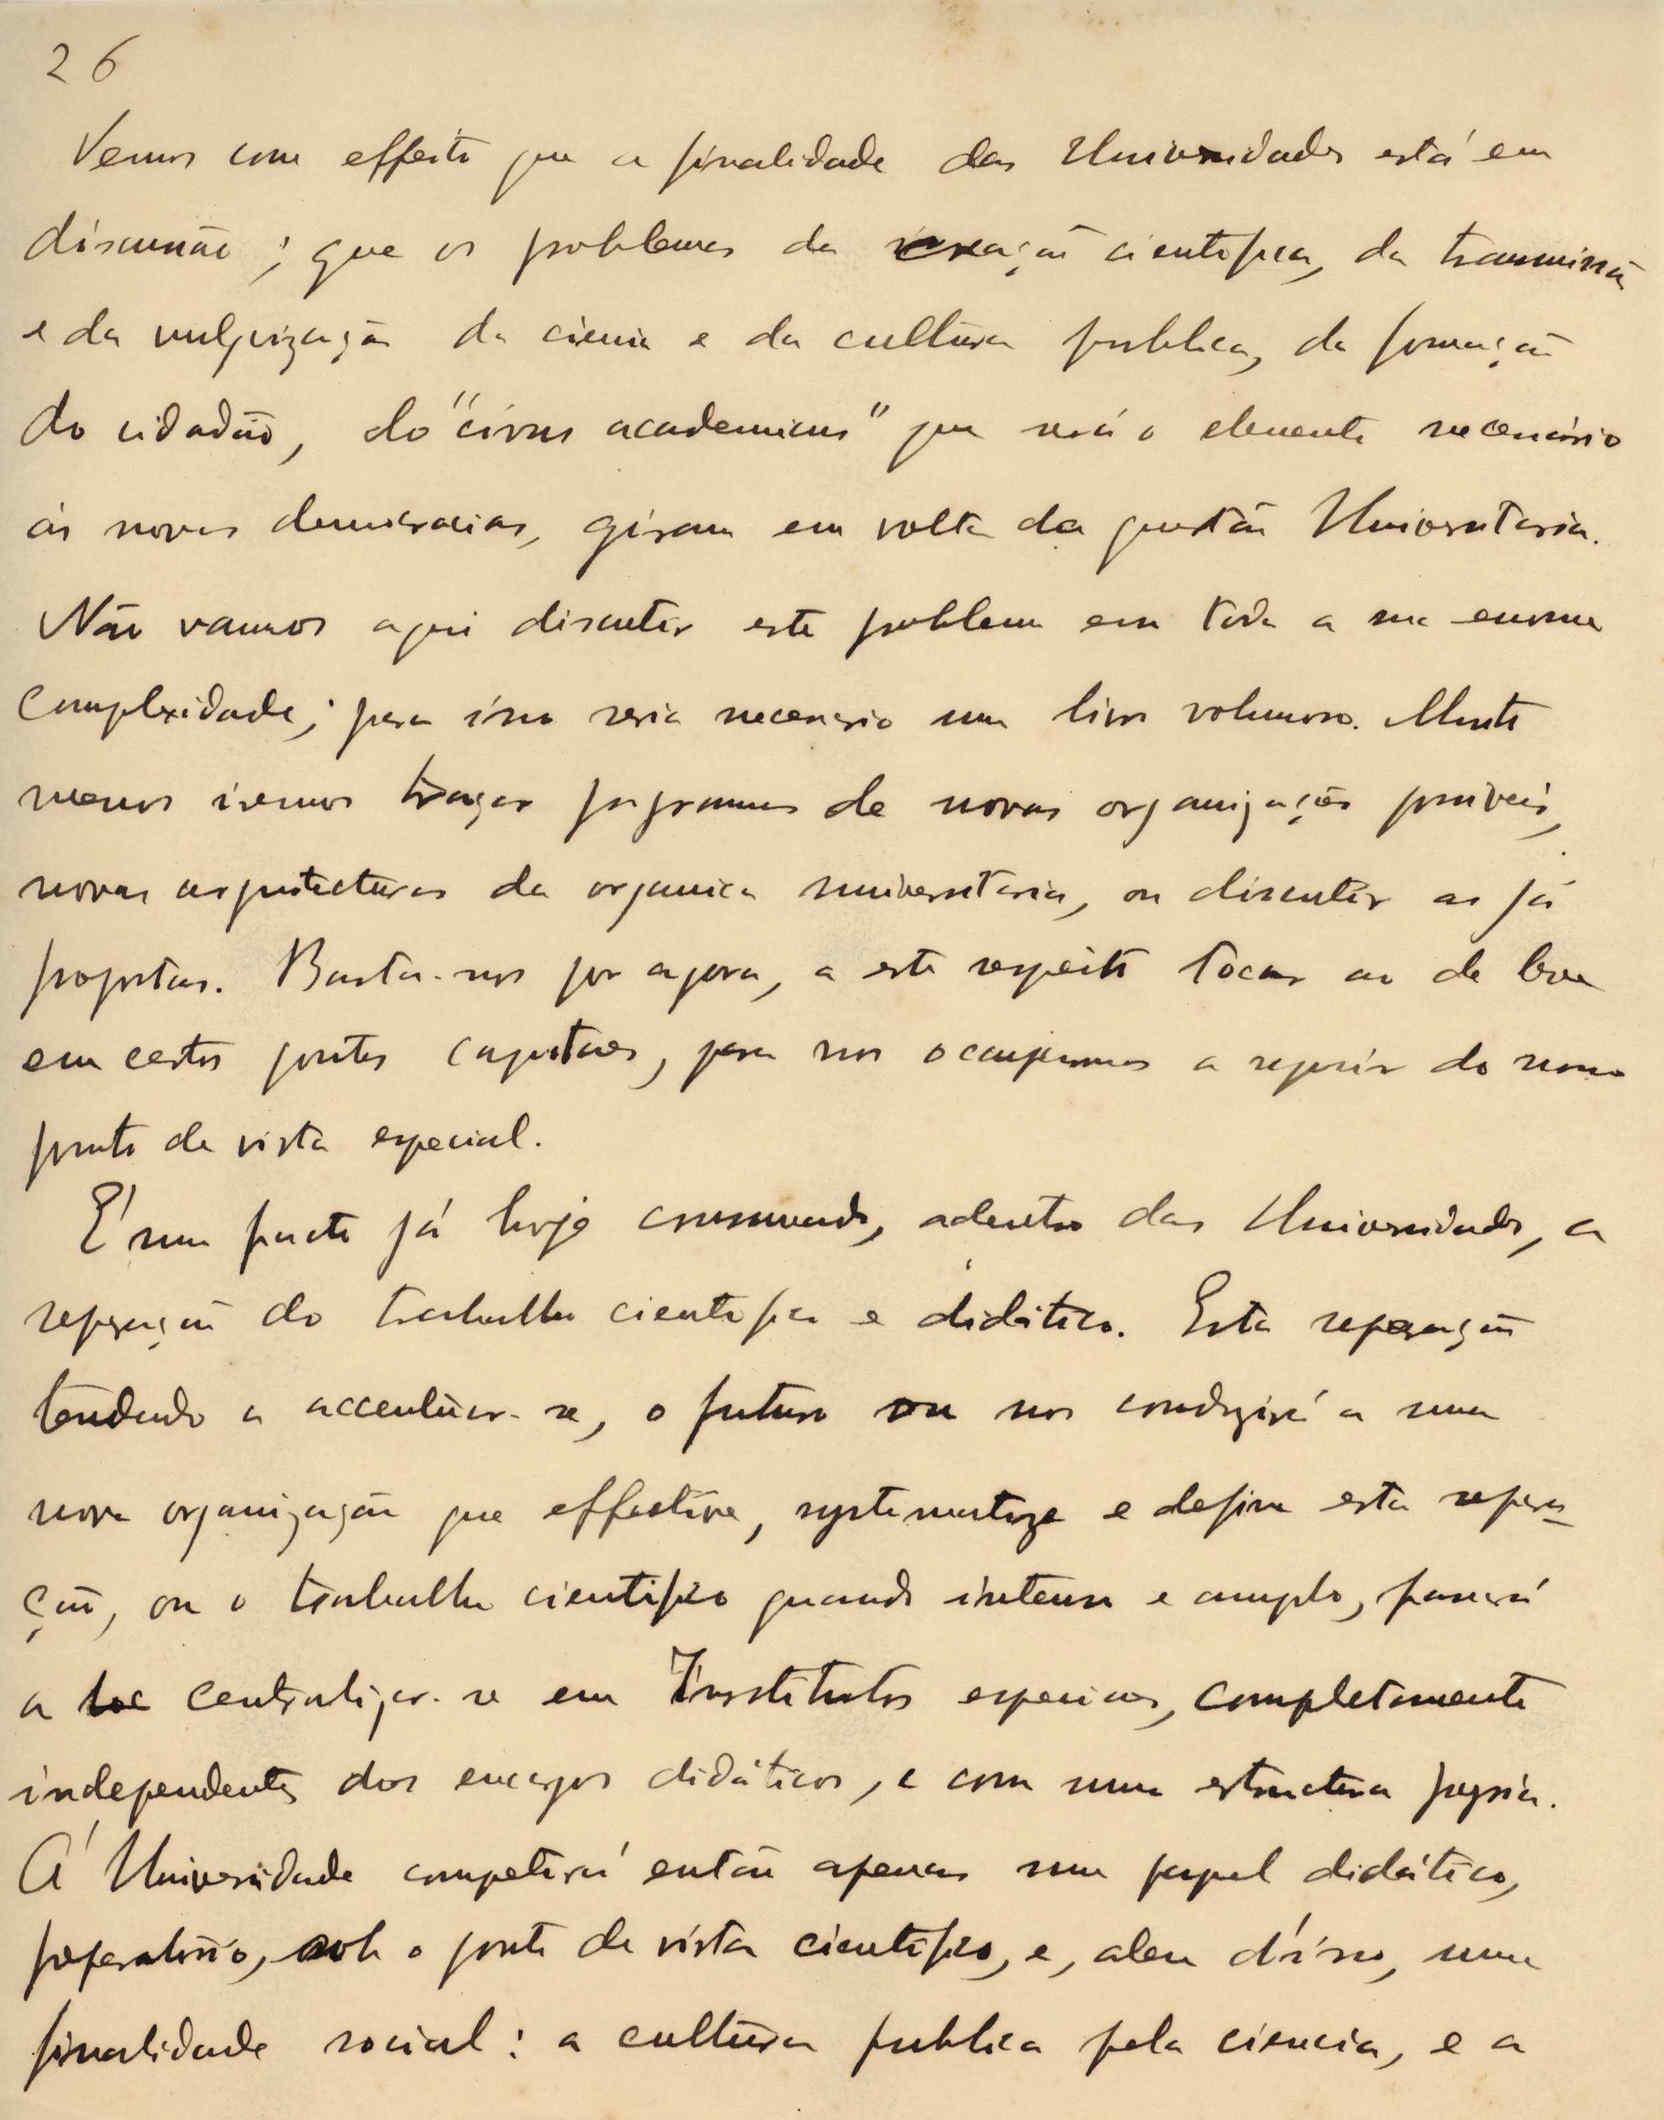 26
Vemos com effeito que a finalidade das Universidades está em
discussão; que os problemas da creação cientifica, da transmissão
e da vulgarização da ciencia e da cultura publica, da formação
do cidadão, do "civus academicus" que será o elemento necessário
ás novas democracias, giram em volta da questão Universitaria.
Não vamos aqui discutir este problema em toda a sua enorme
complexidade; para isso seria necessario um livro volumoso. Muito
menos iremos traçar programas de novas organizações possiveis,
novas arquitecturas da organica universitaria, ou discutir as já
propostas. Basta-nos por agora, a este respeito tocar ao de leve
em certos pontos capitaes, para nos occuparmos a seguir do nosso
ponto de vista especial.
É um facto já hoje consumado, adentro das Universidades, a
separação do trabalho cientifico e didático. Esta separação
tendendo a accentuar-se, o futuro ou nos conduzirá a uma
nova organização que effective, systematize e defina esta separa-
ção, ou o trabalho cientifico quando intenso e amplo, passará
a centralizar-se em Institutos especiaes, completamente
independentes dos encargos didáticos, e com uma estructura propria.
Á Universidade competirá então apenas um papel didático,
preparatorio, sob o ponto de vista cientifico, e, alem d'isso, uma
finalidade social: a cultura publica pela ciencia, e a